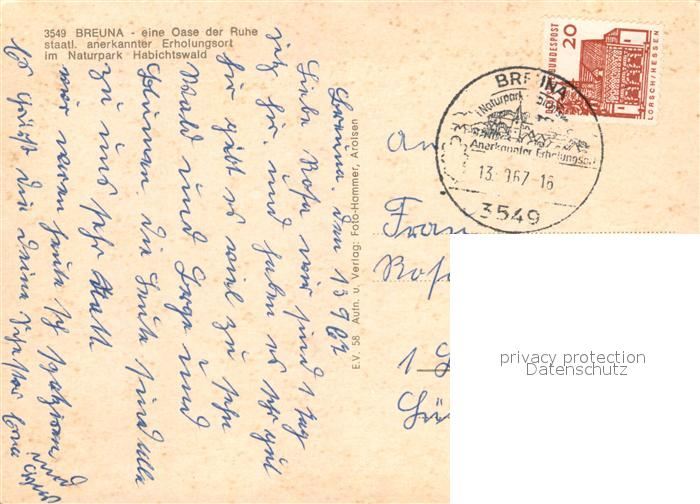 3549 BREUNA - eine Oase der Ruhe
staatl. anerkannter Erholungsort
im Naturpark Habichtswald
BUNDESPOST
20
LORSCH/HESSEN
BREUNA
Naturpark
Anerkannter Erholungsort
13. 9.67-16
3549
Breuna. den 13 9 67
Liebe Rosa wir sind 1 Tag
hir. und haben es sehr gut
hir gibt es viel zu sehn
Wald und Berge und
Blumen. die Leute sind alle
zu uns sehr nett
wir waren heute
und
Es grüßt dich deine Schwester
E.V. 58 Aufn. u. Verlag: Foto-Hammer, Arolsen
An
Frau
Rosa
1
privacy protection
Datenschutz